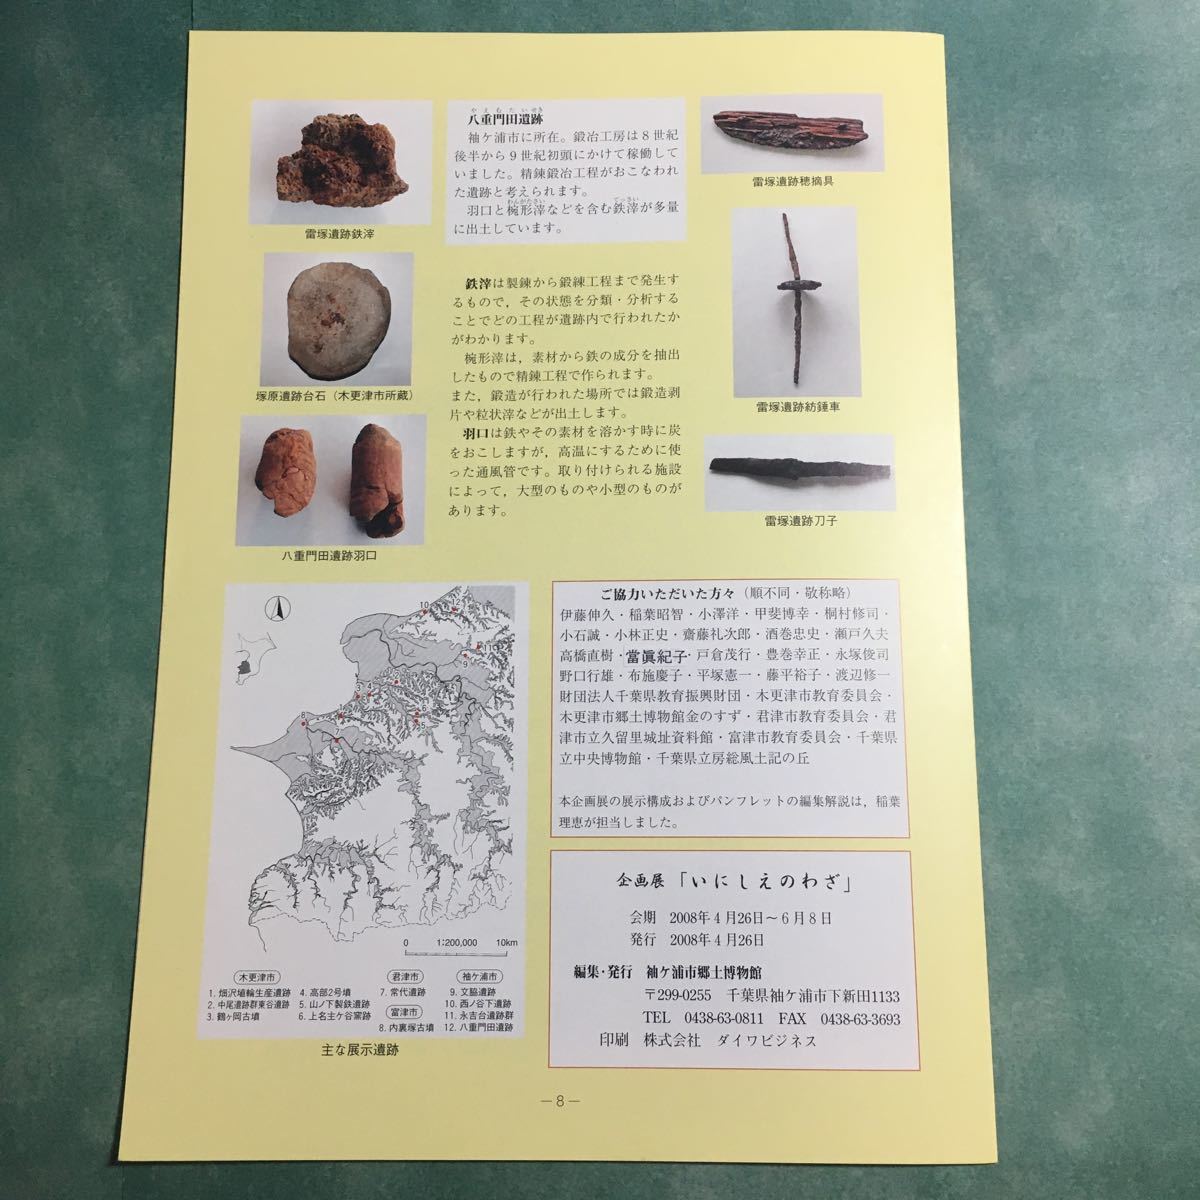 雷塚遺跡鉄滓
塚原遺跡台石（木更津市所蔵）
八重門田遺跡羽口
やえもたいせき
八重門田遺跡
袖ケ浦市に所在。鍛冶工房は８世紀
後半から９世紀初頭にかけて稼働して
いました。精錬鍛冶工程がおこなわれ
た遺跡と考えられます。
わんがたさい てっさい
羽口と椀形滓などを含む鉄滓が多量
に出土しています。
鉄滓は製錬から鍛練工程まで発生す
るもので，その状態を分類・分析する
ことでどの工程が遺跡内で行われたか
がわかります。
椀形滓は，素材から鉄の成分を抽出
したもので精錬工程で作られます。
また，鍛造が行われた場所では鍛造剥
片や粒状滓などが出土します。
羽口は鉄やその素材を溶かす時に炭
をおこしますが，高温にするために使
った通風管です。取り付けられる施設
によって，大型のものや小型のものが
あります。
雷塚遺跡穂摘具
雷塚遺跡紡錘車
雷塚遺跡刀子
0 1:200,000 10km
木更津市
1. 畑沢埴輪生産遺跡
2. 中尾遺跡群東谷遺跡
3. 鶴ヶ岡古墳
4. 高部2号墳
5. 山ノ下製鉄遺跡
6. 上名主ケ谷窯跡
君津市
7. 常代遺跡
富津市
8. 内裏塚古墳
袖ケ浦市
9. 文脇遺跡
10. 西ノ谷下遺跡
11. 永吉台遺跡群
12. 八重門田遺跡
主な展示遺跡
ご協力いただいた方々（順不同・敬称略）
伊藤伸久・稲葉昭智・小澤洋・甲斐博幸・桐村修司・
小石誠・小林正史・齋藤礼次郎・酒巻忠史・瀬戸久夫
高橋直樹・當眞紀子・戸倉茂行・豊巻幸正・永塚俊司
野口行雄・布施慶子・平塚憲一・藤平裕子・渡辺修一
財団法人千葉県教育振興財団・木更津市教育委員会・
木更津市郷土博物館金のすず・君津市教育委員会・君
津市立久留里城址資料館・富津市教育委員会・千葉県
立中央博物館・千葉県立房総風土記の丘
本企画展の展示構成およびパンフレットの編集解説は，稲葉
理恵が担当しました。
企画展「いにしえのわざ」
会期 2008年４月26日～６月８日
発行 2008年４月26日
編集・発行 袖ケ浦市郷土博物館
〒299-0255 千葉県袖ケ浦市下新田1133
TEL 0438-63-0811 FAX 0438-63-3693
印刷 株式会社 ダイワビジネス
－8－